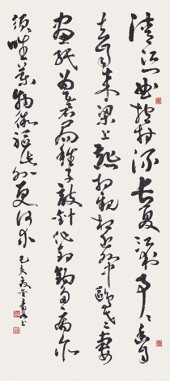 清江一曲抱村流長夏江村事事幽自
去自來梁上燕相親相近水中鷗老妻
畫紙為棋局稚子敲針作釣鉤多病所
須唯藥物微軀此外更何求